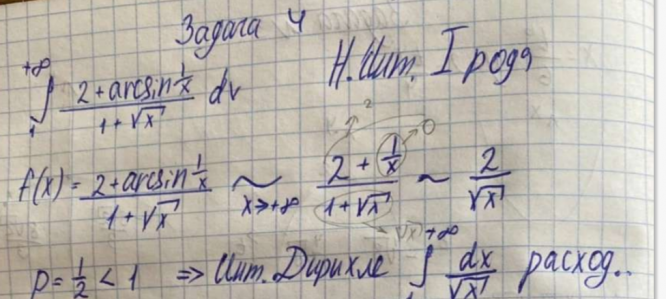 Задача 4
∫₁^{+∞} (2+arcsin 1/x)/(1+√x) dx Н.Инт. I рода
f(x) = (2+arcsin 1/x)/(1+√x) ~_{x→+∞} (2+1/x)/(1+√x) ~ 2/√x
p = 1/2 < 1 ⇒ Инт. Дирихле ∫₁^{+∞} dx/√x расход..